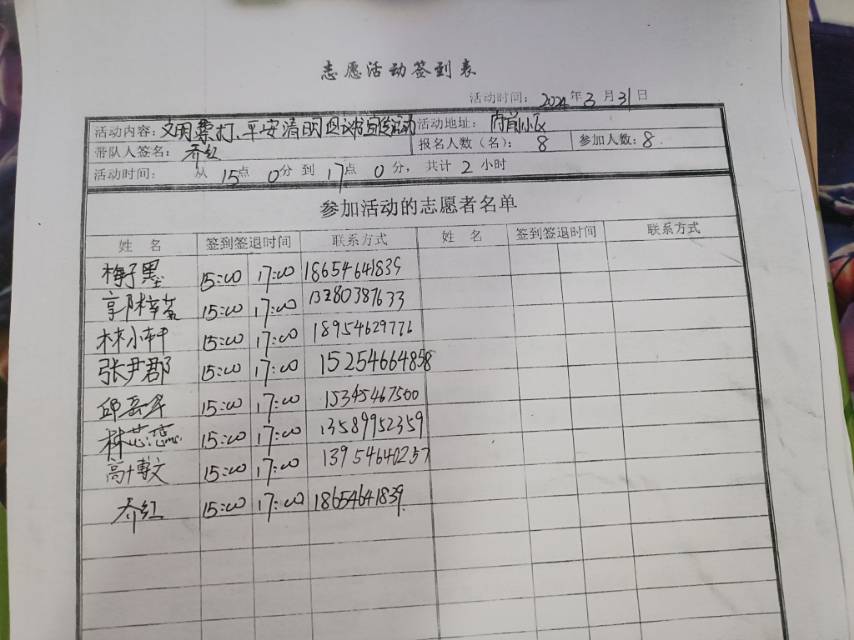 志愿活动签到表
活动时间: 2024年3月31日
活动内容: 文明祭扫、平安清明倡议书宣传活动 活动地址: 小区
带队人签名: 乔红 报名人数(名): 8 参加人数: 8
活动时间: 从 15点 0分 到 17点 0分, 共计 2 小时
参加活动的志愿者名单
姓 名 签到签退时间 联系方式 姓 名 签到签退时间 联系方式
梅子墨 15:00 17:00 18654641839
郭梓茗 15:00 17:00 13280387633
林小轩 15:00 17:00 18954629776
张尹郡 15:00 17:00 15254664858
邱 15:00 17:00 15345467500
林芯 15:00 17:00 13589952359
高博文 15:00 17:00 13954640257
乔红 15:00 17:00 18654641839